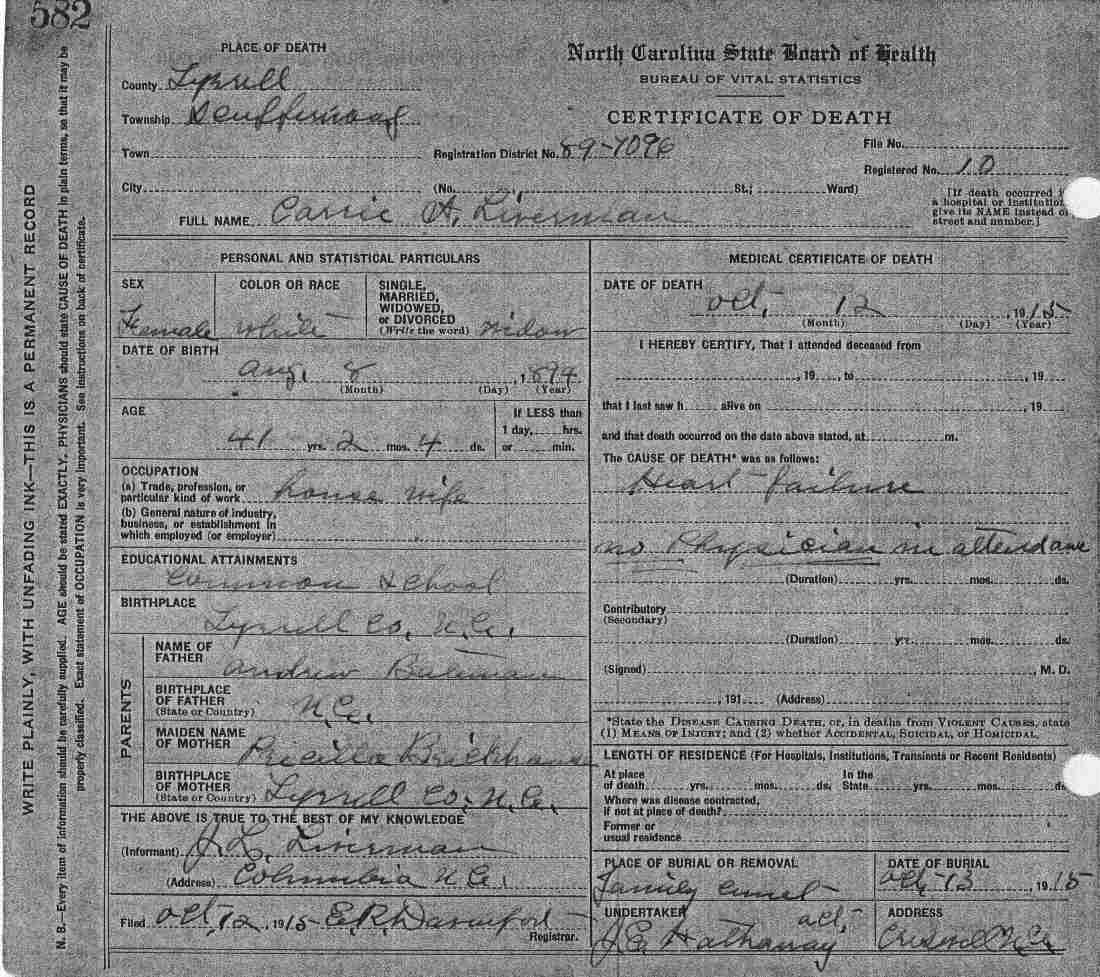 582
WRITE PLAINLY, WITH UNFADING INK—THIS IS A PERMANENT RECORD
N. B.—Every item of information should be carefully supplied. AGE should be stated EXACTLY, PHYSICIANS should state CAUSE OF DEATH in plain terms, so that it may be
properly classified. Exact statement of OCCUPATION is very important. See instructions on back of certificate.
PLACE OF DEATH
County Tyrrell
Township Scuppernong
Town
City
North Carolina State Board of Health
BUREAU OF VITAL STATISTICS
CERTIFICATE OF DEATH
Registration District No. 89-7096
File No.
Registered No. 10
(No. St.; Ward)
[If death occurred in
a hospital or institution
give its NAME instead of
street and number.]
FULL NAME Carrie A. Liverman
PERSONAL AND STATISTICAL PARTICULARS
SEX
Female
COLOR OR RACE
White
SINGLE,
MARRIED,
WIDOWED,
or DIVORCED
(Write the word) Widow
DATE OF BIRTH
Aug. 8, 1874
(Month) (Day) (Year)
AGE
41 yrs. 2 mos. 4 ds.
If LESS than
1 day, hrs.
or min.
OCCUPATION
(a) Trade, profession, or
particular kind of work house wife
(b) General nature of industry,
business, or establishment in
which employed (or employer)
EDUCATIONAL ATTAINMENTS
Common School
BIRTHPLACE
Tyrrell Co. N.C.
PARENTS
NAME OF
FATHER
Andrew Bateman
BIRTHPLACE
OF FATHER
(State or Country) N.C.
MAIDEN NAME
OF MOTHER Precilla Brickhouse
BIRTHPLACE
OF MOTHER
(State or Country) Tyrrell Co. N.C.
THE ABOVE IS TRUE TO THE BEST OF MY KNOWLEDGE
(Informant) J. L. Liverman
(Address) Columbia N.C.
Filed Oct, 12, 1915 E.R. Davenport
Registrar.
MEDICAL CERTIFICATE OF DEATH
DATE OF DEATH
Oct, 12, 1915
(Month) (Day) (Year)
I HEREBY CERTIFY, That I attended deceased from
, 19 , to , 19
that I last saw h alive on , 19
and that death occurred on the date above stated, at m.
The CAUSE OF DEATH* was as follows:
Heart failure
no Physician in attendance
(Duration) yrs. mos. ds.
Contributory
(Secondary)
(Duration) yrs. mos. ds.
(Signed) , M. D.
, 191 (Address)
*State the DISEASE CAUSING DEATH, or, in deaths from VIOLENT CAUSES, state
(1) MEANS OF INJURY; and (2) whether ACCIDENTAL, SUICIDAL, or HOMICIDAL.
LENGTH OF RESIDENCE (For Hospitals, Institutions, Transients or Recent Residents)
At place In the
of death yrs. mos. ds. State yrs. mos. ds.
Where was disease contracted,
if not at place of death?
Former or
usual residence
PLACE OF BURIAL OR REMOVAL
Family cemet
DATE OF BURIAL
Oct, 13, 1915
UNDERTAKER
act,
J.E. Hathaway
ADDRESS
Creswell N.C.